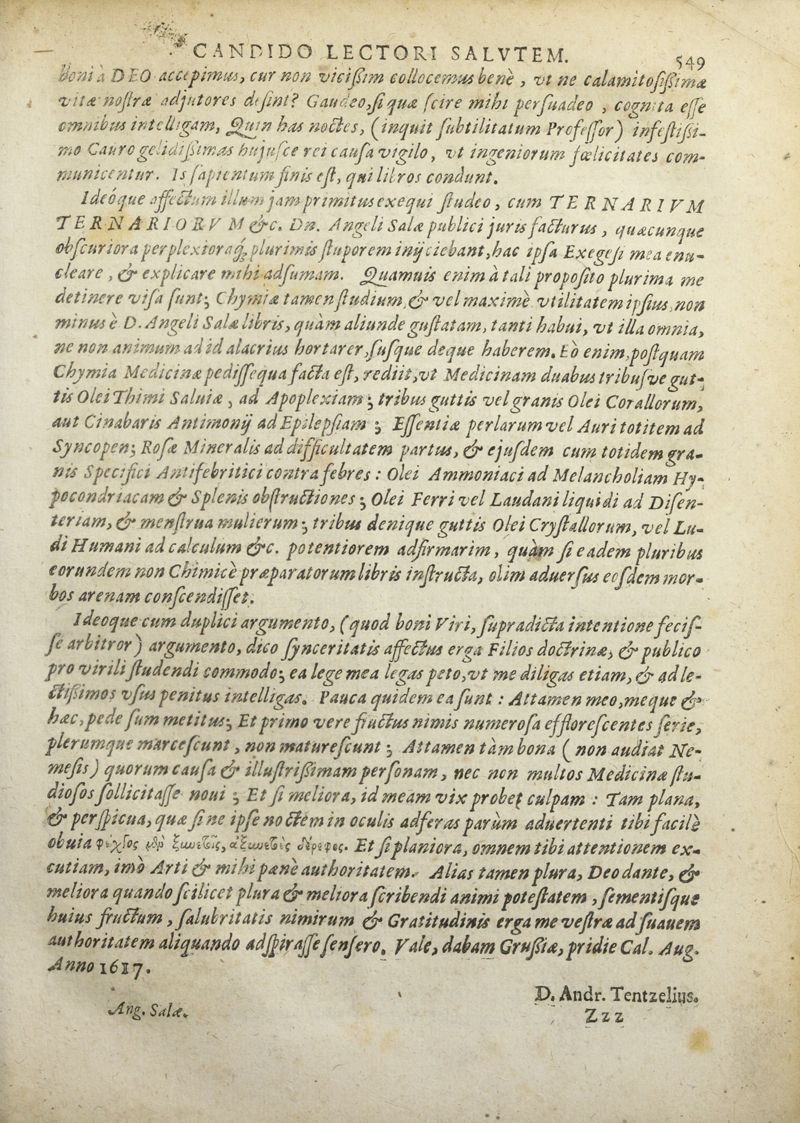 CANDIDO LECTORI SALVTEM.
549
boni à DEO accepimus, cur non vicißim collocemus benè, vt ne calamitosißimæ
vitæ nostræ adjutores desint? Gaudeo, si quæ scire mihi persuadeo, cognita esse
omnibus intelligam, Quin has noctes, (inquit subtilitatum Professor) infestißi-
mo Cauro gelidißimas hujusce rei causa vigilo, vt ingeniorum fœlicitates com-
municentur. Is sapientum finis est, qui libros condunt.
Ideóque affectum illum jam primitus exequi studeo, cum TERNARIVM
TERNARIORVM &c. Dn. Angeli Salæ publici juris facturus, quæcunque
obscuriora perplexioraq́; plurimis stuporem inijciebant, hac ipsa Exegesi mea enu-
cleare, & explicare mihi adsumam. Quamuis enim à tali proposito plurima me
detinere visa sunt; Chymiæ tamen studium, & vel maximè vtilitatem ipsius, non
minus è D. Angeli Salæ libris, quàm aliunde gustatam, tanti habui, vt illa omnia,
ne non animum ad id alacrius hortarer, susque deque haberem. Eò enim, postquam
Chymia Medicinæ pedissequa facta est, rediit, vt Medicinam duabus tribusve gut-
tis Olei Thimi Saluiæ, ad Apoplexiam; tribus guttis vel granis Olei Corallorum,
aut Cinabaris Antimonij ad Epilepsiam; Essentiæ perlarum vel Auri totitem ad
Syncopen; Rosæ Mineralis ad difficultatem partus, & ejusdem cum totidem gra-
nis Specifici Antifebritici contra febres: Olei Ammoniaci ad Melancholiam Hy-
pocondriacam & Splenis obstructiones; Olei Ferri vel Laudani liquidi ad Disen-
teriam, & menstrua mulierum; tribus denique guttis Olei Crystallorum, vel Lu-
di Humani ad calculum &c. potentiorem adfirmarim, quàm si eadem pluribus
eorundem non Chimicè præparatorum libris instructa, olim aduersus eosdem mor-
bos arenam conscendisset.
Ideoque cum duplici argumento, (quod boni Viri, supradicta intentione fecis-
se arbitror) argumento, dico synceritatis affectus erga Filios doctrinæ, & publico
pro virili studendi commodo; ea lege mea legas peto, vt me diligas etiam, & ad le-
ctißimos vsus penitus intelligas. Pauca quidem ea sunt: Attamen meo, meque &
hæc, pede sum metitus; Et primo vere fructus nimis numerosa efflorescentes serie,
plerumque marcescunt, non maturescunt; Attamen tàm bona (non audiat Ne-
mesis) quorum causa & illustrißimam personam, nec non multos Medicinæ stu-
diosos sollicitasse noui; Et si meliora, id meam vix probet culpam: Tam plana,
& perspicua, quæ si ne ipse noctem in oculis adferas parùm aduertenti tibi facilè
obuia Et si planiora, omnem tibi attentionem ex-
cutiam, imò Arti & mihi pænè authoritatem. Alias tamen plura, Deo dante, &
meliora quando scilicet plura & meliora scribendi animi potestatem, sementisque
huius fructum, salubritatis nimirum & Gratitudinis erga me vestræ ad suauem
authoritatem aliquando adspirasse sensero. Vale, dabam Grußiæ, pridie Cal. Aug.
Anno 1617.
D. Andr. Tentzelius.
Ang. Salæ.
Zzz